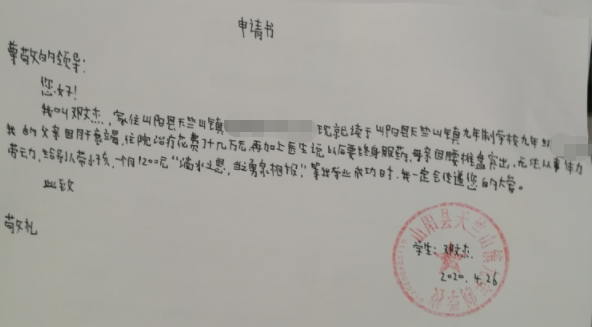 申请书
尊敬的领导:
您好!
我叫邓文杰,家住山阳县天竺山镇 现就读于山阳县天竺山镇九年制学校九年
我的父亲因肝衰竭,住院治疗花费了十几万元,再加上医生说以后要终身服药,母亲因腰椎盘突出,无法从事体力
劳动,给别人带小孩,一个月1200元“滴水之恩,当涌泉相报”,等我学业成功时,我一定会传递您的大爱。
此致
敬礼
学生:邓文杰
2020.4.26
山阳县天竺山镇九年制学校